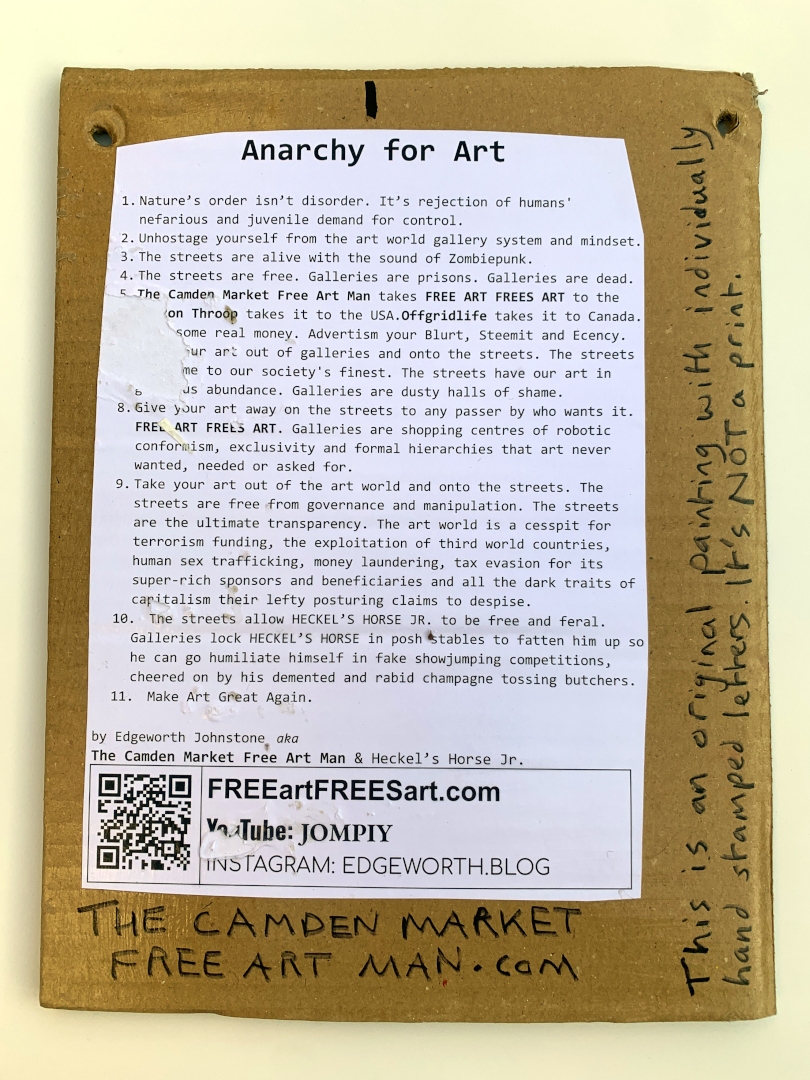 Anarchy for Art
1. Nature's order isn't disorder. It's rejection of humans'
nefarious and juvenile demand for control.
2. Unhostage yourself from the art world gallery system and mindset.
3. The streets are alive with the sound of Zombiepunk.
4. The streets are free. Galleries are prisons. Galleries are dead.
5. The Camden Market Free Art Man takes FREE ART FREES ART to the
on Throop takes it to the USA.Offgridlife takes it to Canada.
some real money. Advertism your Blurt, Steemit and Ecency.
art out of galleries and onto the streets. The streets
to our society's finest. The streets have our art in
abundance. Galleries are dusty halls of shame.
8. Give your art away on the streets to any passer by who wants it.
FREE ART FREES ART. Galleries are shopping centres of robotic
conformism, exclusivity and formal hierarchies that art never
wanted, needed or asked for.
9. Take your art out of the art world and onto the streets. The
streets are free from governance and manipulation. The streets
are the ultimate transparency. The art world is a cesspit for
terrorism funding, the exploitation of third world countries,
human sex trafficking, money laundering, tax evasion for its
super-rich sponsors and beneficiaries and all the dark traits of
capitalism their lefty posturing claims to despise.
10. The streets allow HECKEL'S HORSE JR. to be free and feral.
Galleries lock HECKEL'S HORSE in posh stables to fatten him up so
he can go humiliate himself in fake showjumping competitions,
cheered on by his demented and rabid champagne tossing butchers.
11. Make Art Great Again.
by Edgeworth Johnstone aka
The Camden Market Free Art Man & Heckel's Horse Jr.
FREEartFREESart.com
YouTube: JOMPIY
INSTAGRAM: EDGEWORTH.BLOG
THE CAMDEN MARKET
FREE ART MAN.com
This is an original painting with individually
hand stamped letters. It's NOT a print.